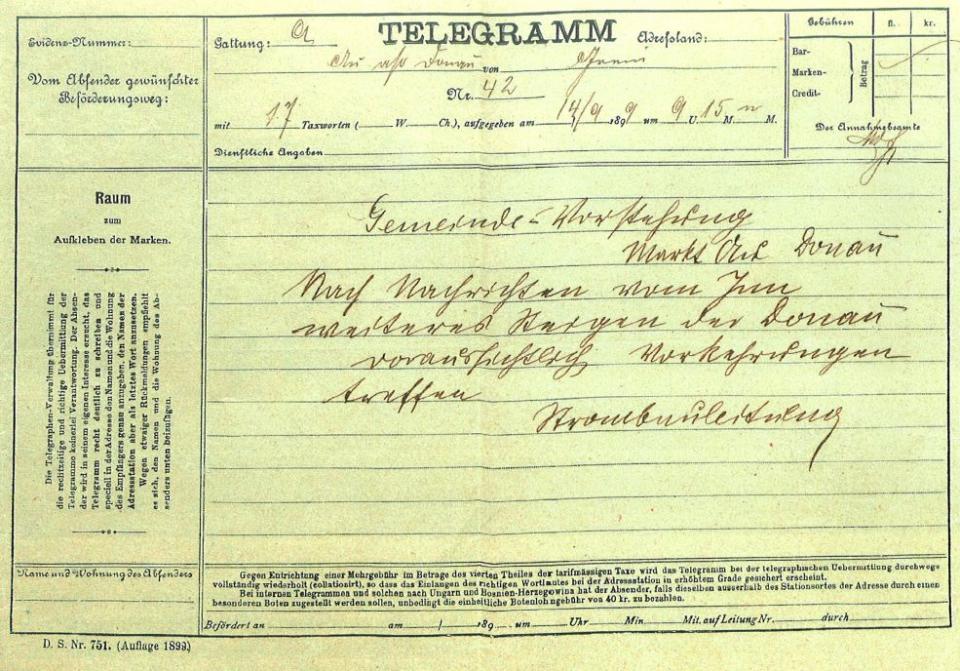 Evidenz-Nummer:
Vom Absender gewünschter
Beförderungsweg:
Gattung:
TELEGRAMM
Adreßland:
Au a/o Donau von
Nr. 42
mit 17 Taxworten ( W. Ch.), aufgegeben am 14/9 1899 um 9 U. 15 M. M.
Dienstliche Angaben
Gebühren fl. kr.
Bar-
Marken-
Credit-
Betrag
Der Annahmebeamte
Raum
zum
Aufkleben der Marken.
Die Telegraphen-Verwaltung übernimmt für
die rechtzeitige und richtige Uebermittlung der
Telegramme keinerlei Verantwortung. Der Absen-
der wird in seinem eigenen Interesse ersucht, das
Telegramm recht deutlich zu schreiben und
speciell in der Adresse den Namen und die Wohnung
des Empfängers genau anzugeben, den Namen der
Adressstation aber als letztes Wort anzusetzen.
Wegen etwaiger Rückmeldungen empfiehlt
es sich, den Namen und die Wohnung des Ab-
senders unten beizufügen.
Name und Wohnung des Absenders
Gemeinde-Vorstehung
Markt Au Donau
Nach Nachrichten vom Inn
weiteres Steigen der Donau
voraussichtlich Vorkehrungen
treffen
Strombauleitung
Gegen Entrichtung einer Mehrgebühr im Betrage des vierten Theiles der tarifmässigen Taxe wird das Telegramm bei der telegraphischen Uebermittlung durchwegs
vollständig wiederholt (collationirt), so dass das Einlangen des richtigen Wortlautes bei der Adressstation in erhöhtem Grade gesichert erscheint.
Bei internen Telegrammen und solchen nach Ungarn und Bosnien-Herzegowina hat der Absender, falls dieselben ausserhalb des Stationsortes der Adresse durch einen
besonderen Boten zugestellt werden sollen, unbedingt die einheitliche Botenlohngebühr von 40 kr. zu bezahlen.
Befördert an am / 189 um Uhr Min. Mit auf Leitung Nr. durch
D. S. Nr. 751. (Auflage 1899.)